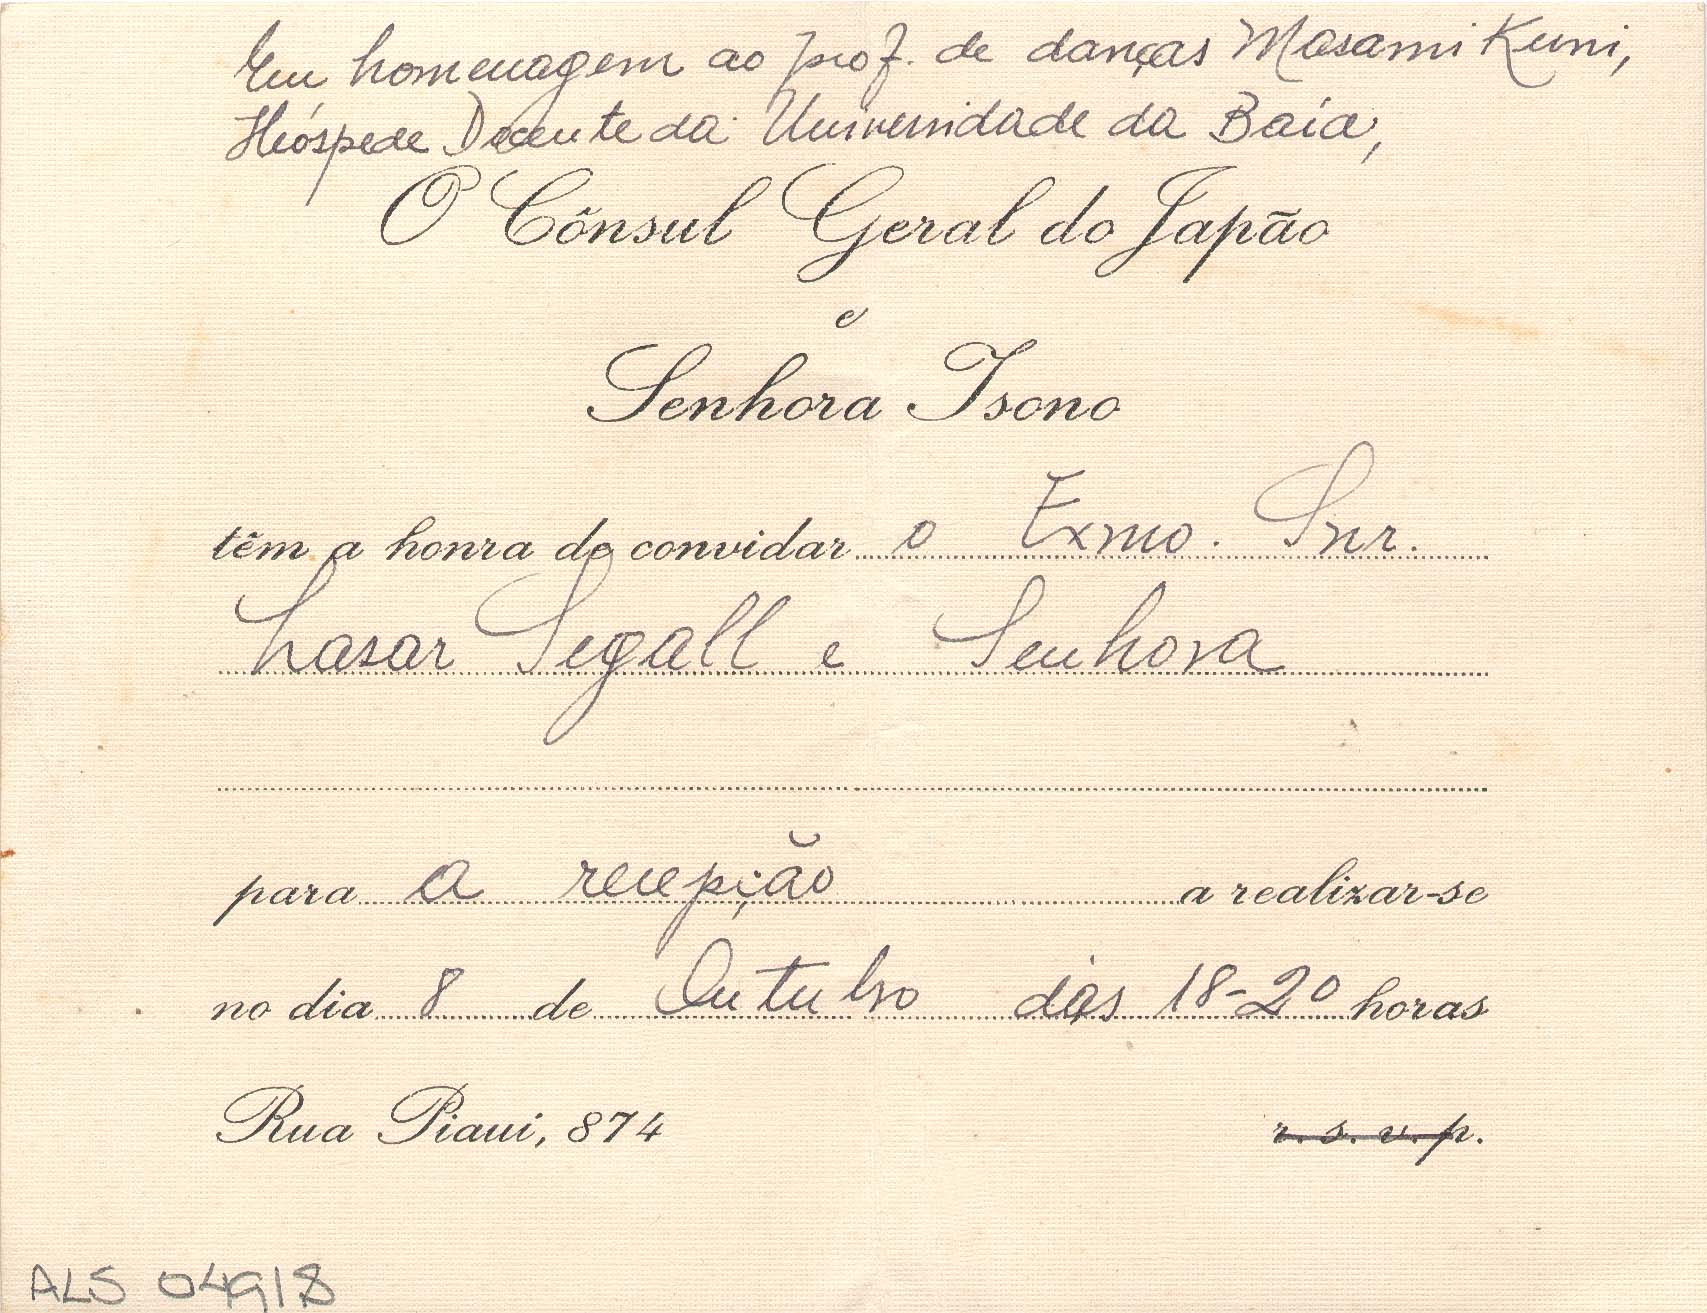 Em homenagem ao prof. de danças Masami Kuni,
Hóspede Docente da Universidade da Baía,
O Cônsul Geral do Japão
e
Senhora Isono
têm a honra de convidar o Exmo. Snr.
Lasar Segall e Senhora
para a recepção a realizar-se
no dia 8 de Outubro das 18-20 horas
Rua Piaui, 874 r. s. v. p.
ALS 04918